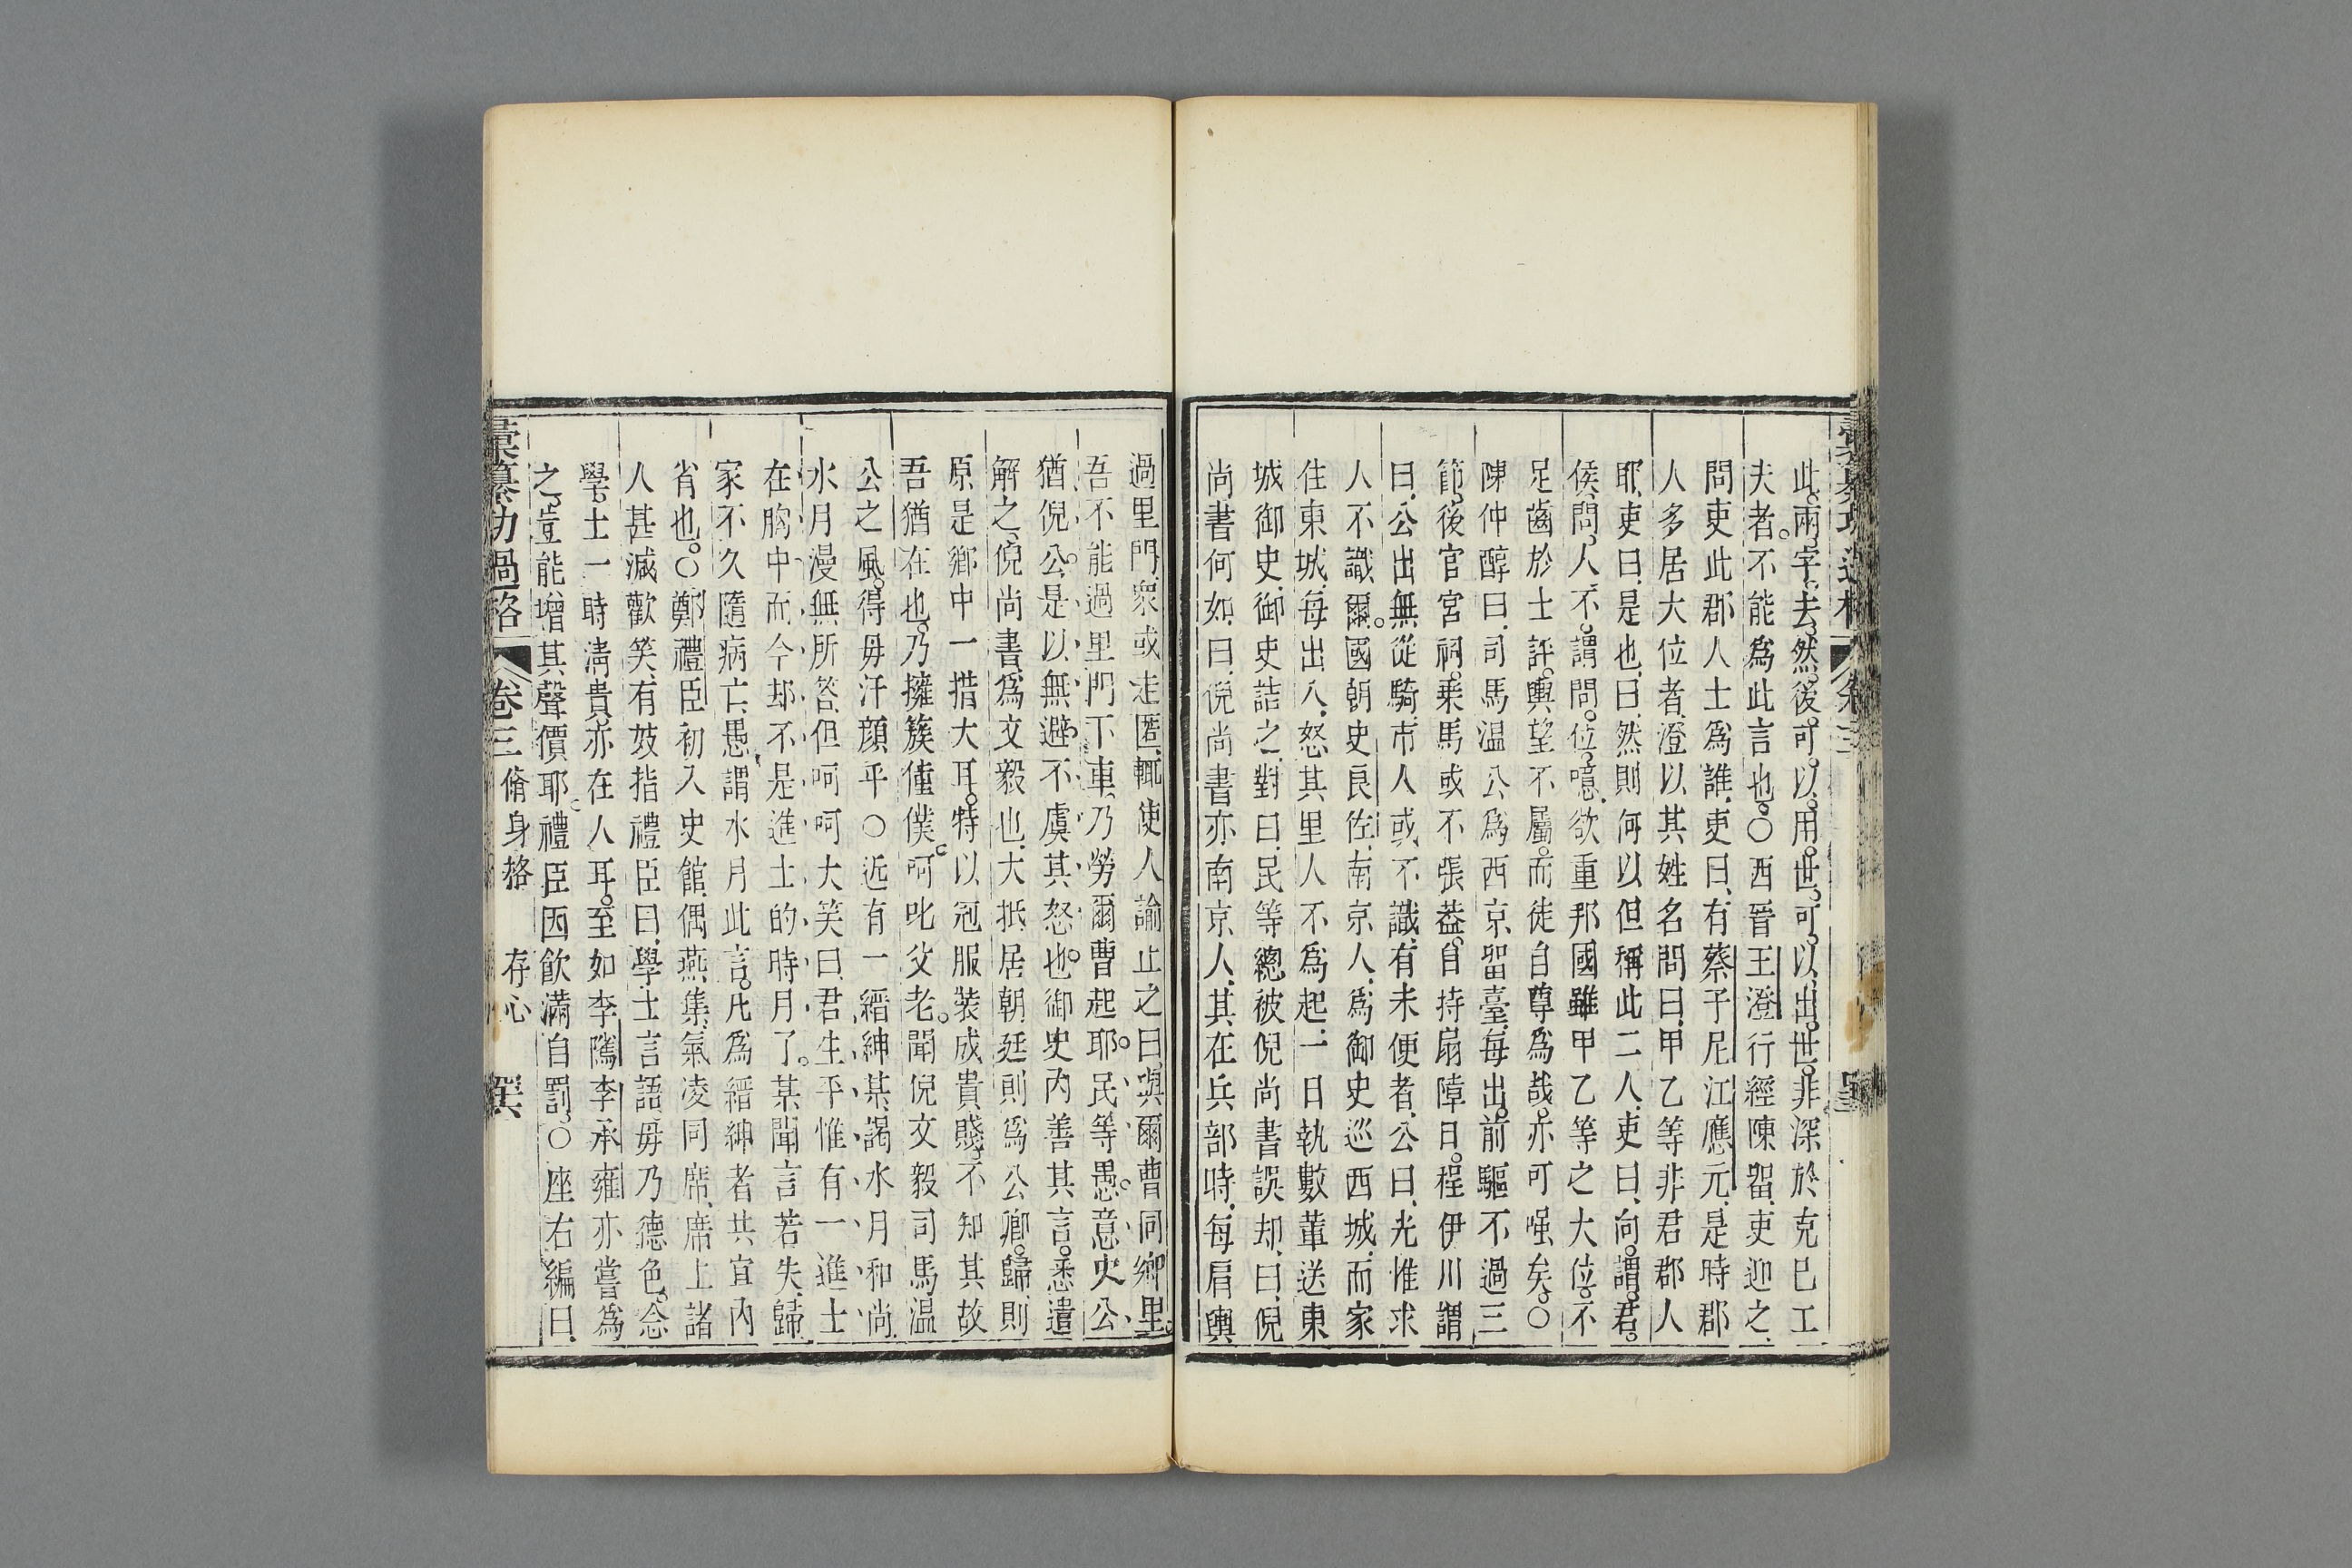 此兩字去然後可以用世可以出世非深於克已工
夫者不能爲此言也○西晉王澄行經陳留吏迎之
問吏此郡人士爲誰吏曰有蔡子尼江應元是時郡
人多居大位者澄以其姓名問曰甲乙等非君郡人
耶吏曰是也曰然則何以但稱此二人吏曰向謂君
侯問人不謂問位噫欲重邦國雖甲乙等之大位不
足齒於士許輿望不屬而徒自尊爲哉亦可哂矣○
陳仲醇曰司馬温公爲西京留臺每出前驅不過三
節後官宮祠乘馬或不張葢自持扇障日程伊川謂
曰公出無從騎市人或不識有未便者公曰光惟求
人不識爾國朝史良佐南京人爲御史巡西城而家
住東城每出入怒其里人不爲起一日執數輩送東
城御史御史詰之對曰民等總被倪尚書誤却曰倪
尚書何如曰倪尚書亦南京人其在兵部時每肩輿
過里門衆或走匿輒使人諭止之曰與爾曹同鄉里
吾不能過里門下車乃勞爾曹起耶民等愚意史公
猶倪公是以無避不虞其怒也御史内善其言悉遣
解之倪尚書爲文毅也大抵居朝廷則爲公卿歸則
原是鄉中一措大耳特以冠服裝成貴賤不知其故
吾猶在也乃擁簇僮僕呵叱父老聞倪文毅司馬温
公之風得毋汗顔乎○近有一縉紳某謁水月和尚
水月漫無所答但呵呵大笑曰君生平惟有一進士
在胸中而今却不是進士的時月了某聞言若失歸
家不久隨病亡愚謂水月此言凡爲縉紳者共宜内
省也○鄭禮臣初入史館偶燕集氣凌同席席上諸
人甚減歡笑有妓指禮臣曰學士言語毋乃德色念
學士一時清貴亦在人耳至如李隲李承雍亦嘗爲
之豈能增其聲價耶禮臣因飲滿自罰○座右編曰
彙纂功過格 卷三 脩身格 存心